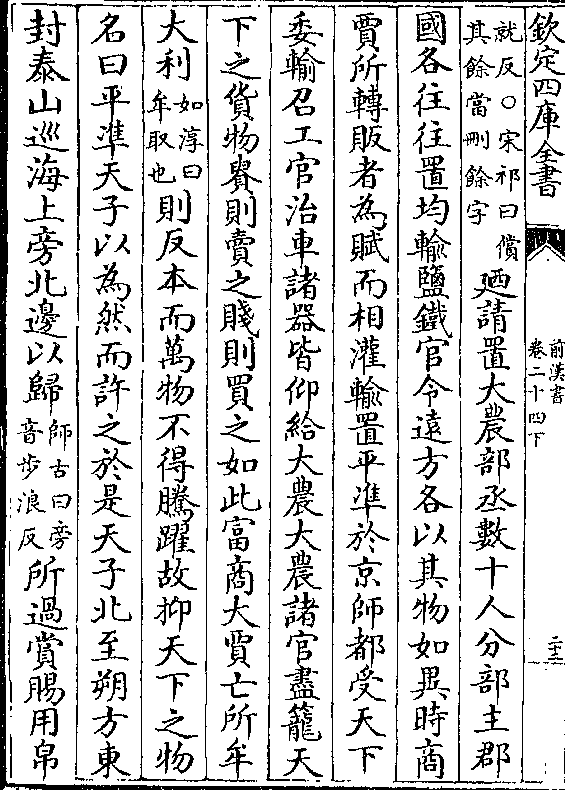 欽定四庫全書
前漢書
卷二十四下
二十三
就反○宋祁曰僨
其餘當刪餘字
廼請置大農部丞數十人分部主郡
國各往往置均輸鹽鐵官令遠方各以其物如異時商
賈所轉販者為賦而相灌輸置平準於京師都受天下
委輸召工官治車諸器皆仰給大農大農諸官盡籠天
下之貨物貴則賣之賤則買之如此富商大賈亡所牟
大利如淳曰牟取也則反本而萬物不得騰躍故抑天下之物
名曰平準天子以為然而許之於是天子北至朔方東
封泰山巡海上旁北邊以歸師古曰旁音步浪反所過賞賜用帛